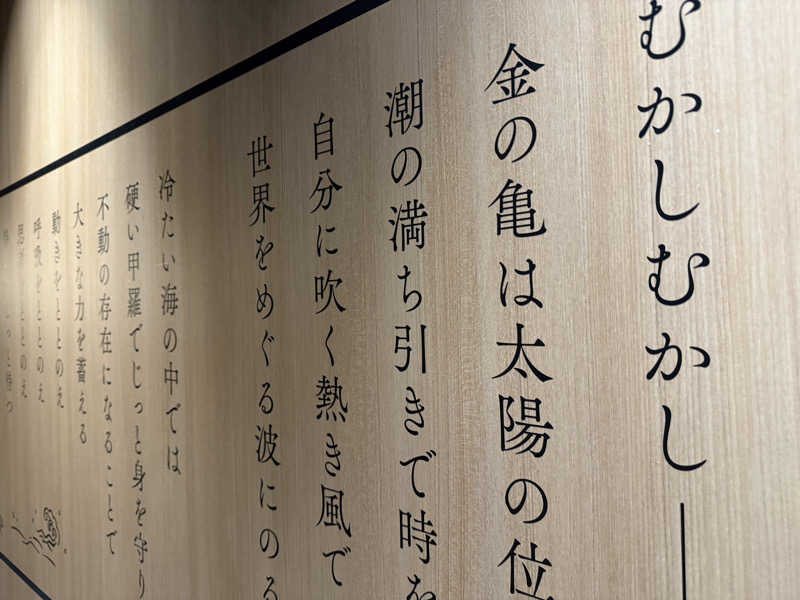 むかしむかし―
金の亀は太陽の位
潮の満ち引きで時を
自分に吹く熱き風で
世界をめぐる波にのる
冷たい海の中では
硬い甲羅でじっと身を守り
不動の存在になることで
大きな力を蓄える
動きをととのえ
呼吸をととのえ
ととのえ
っと待つ